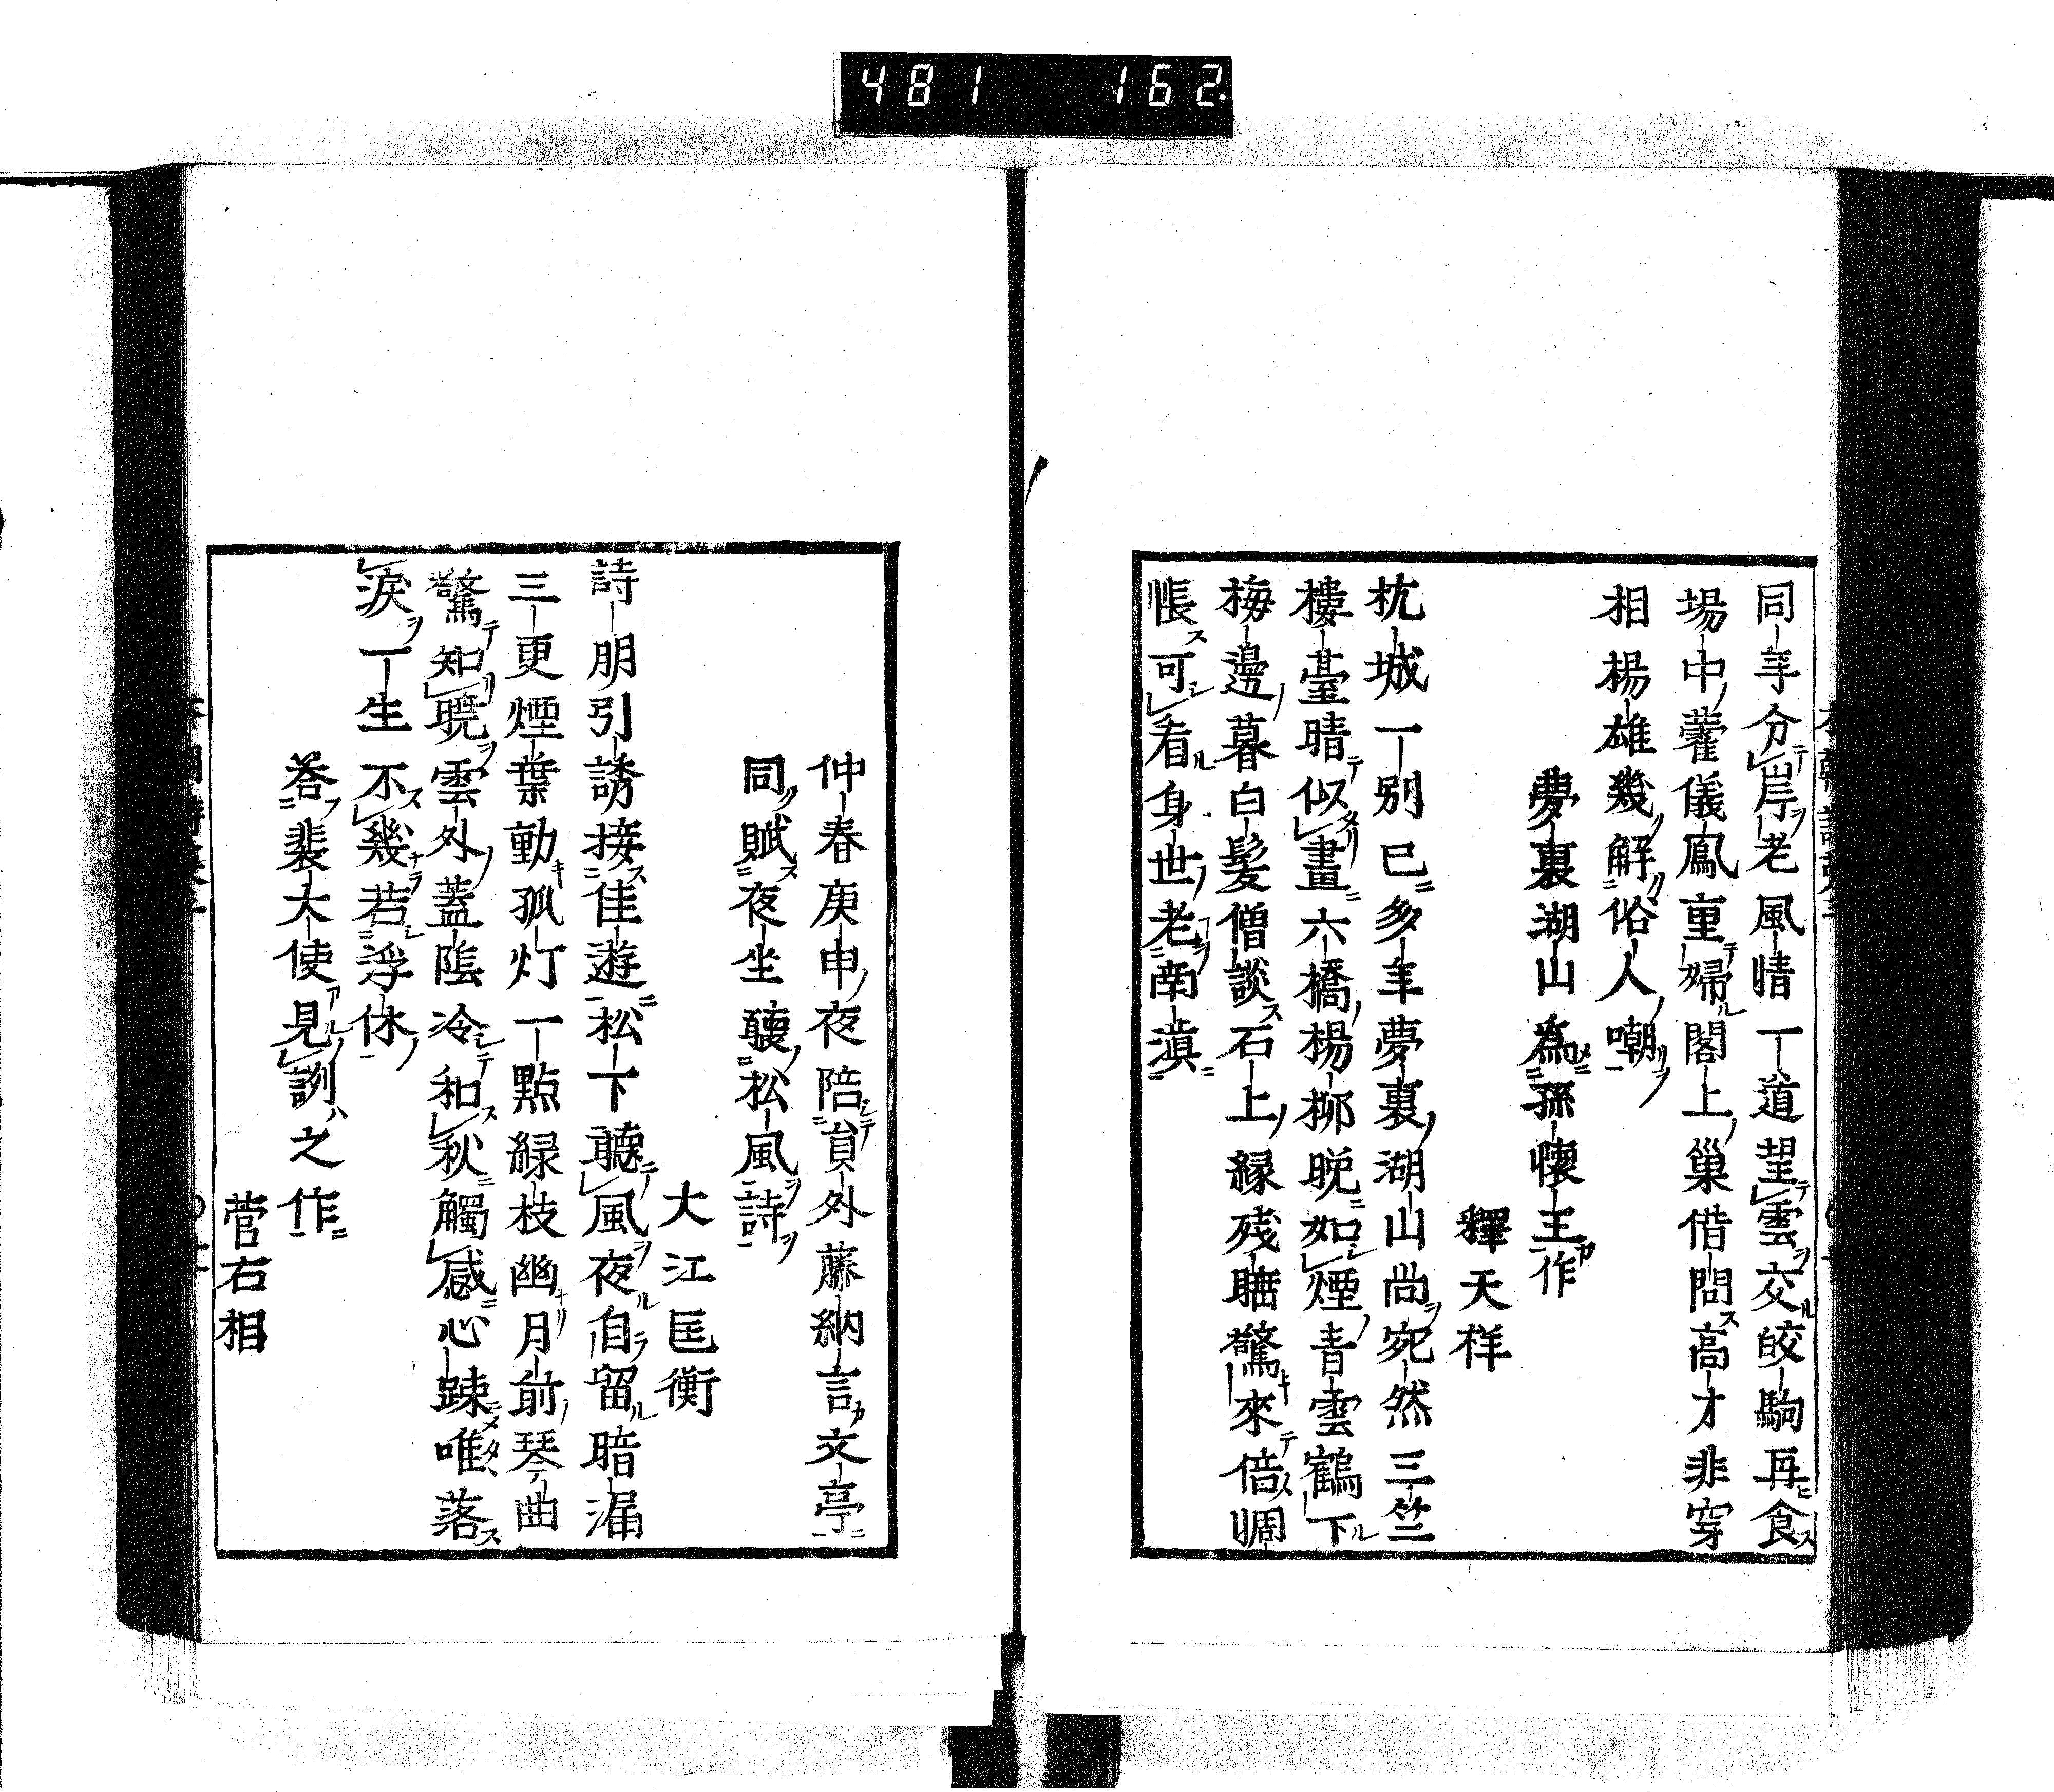 481 162
同年分岸老風情一道望雲交皎駒再食
場中藿儀鳳重歸閣上巢借問高才非穿
相楊雄幾解俗人嘲
夢裏湖山為孫懷王作
釋天祥
杭城一別已多年夢裏湖山尚宛然三竺
樓臺晴似畫六橋楊柳晚如煙青雲鶴下
梅邊暮白髮僧談石上緣殘睡驚來倍惆
悵可看身世老南滇
仲春庚申夜陪員外藤納言文亭
同賦夜坐聽松風詩
大江匡衡
詩朋引誘接佳遊松下聽風夜自留暗漏
三更煙葉動孤灯一點緑枝幽月前琴曲
驚知曉雲外蓋陰冷和秋觸感心踈唯落
淚一生不幾若浮休
答裴大使見訓之作
菅右相